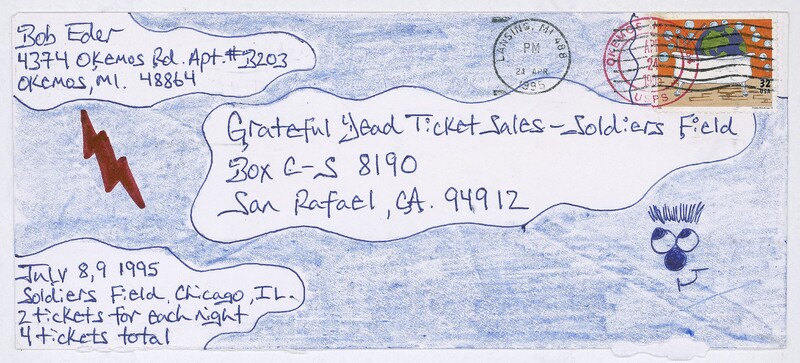 Bob Eder
4374 Okemos Rd. Apt. #B203
Okemos, MI. 48864
LANSING, MI 488
PM
24 APR
1995
OKEMOS, MI
APR
24
USPS
32
USA
Grateful Dead Ticket Sales - Soldiers Field
Box C-S 8190
San Rafael, CA. 94912
July 8,9 1995
Soldiers Field, Chicago, IL.
2 tickets for each night
4 tickets total